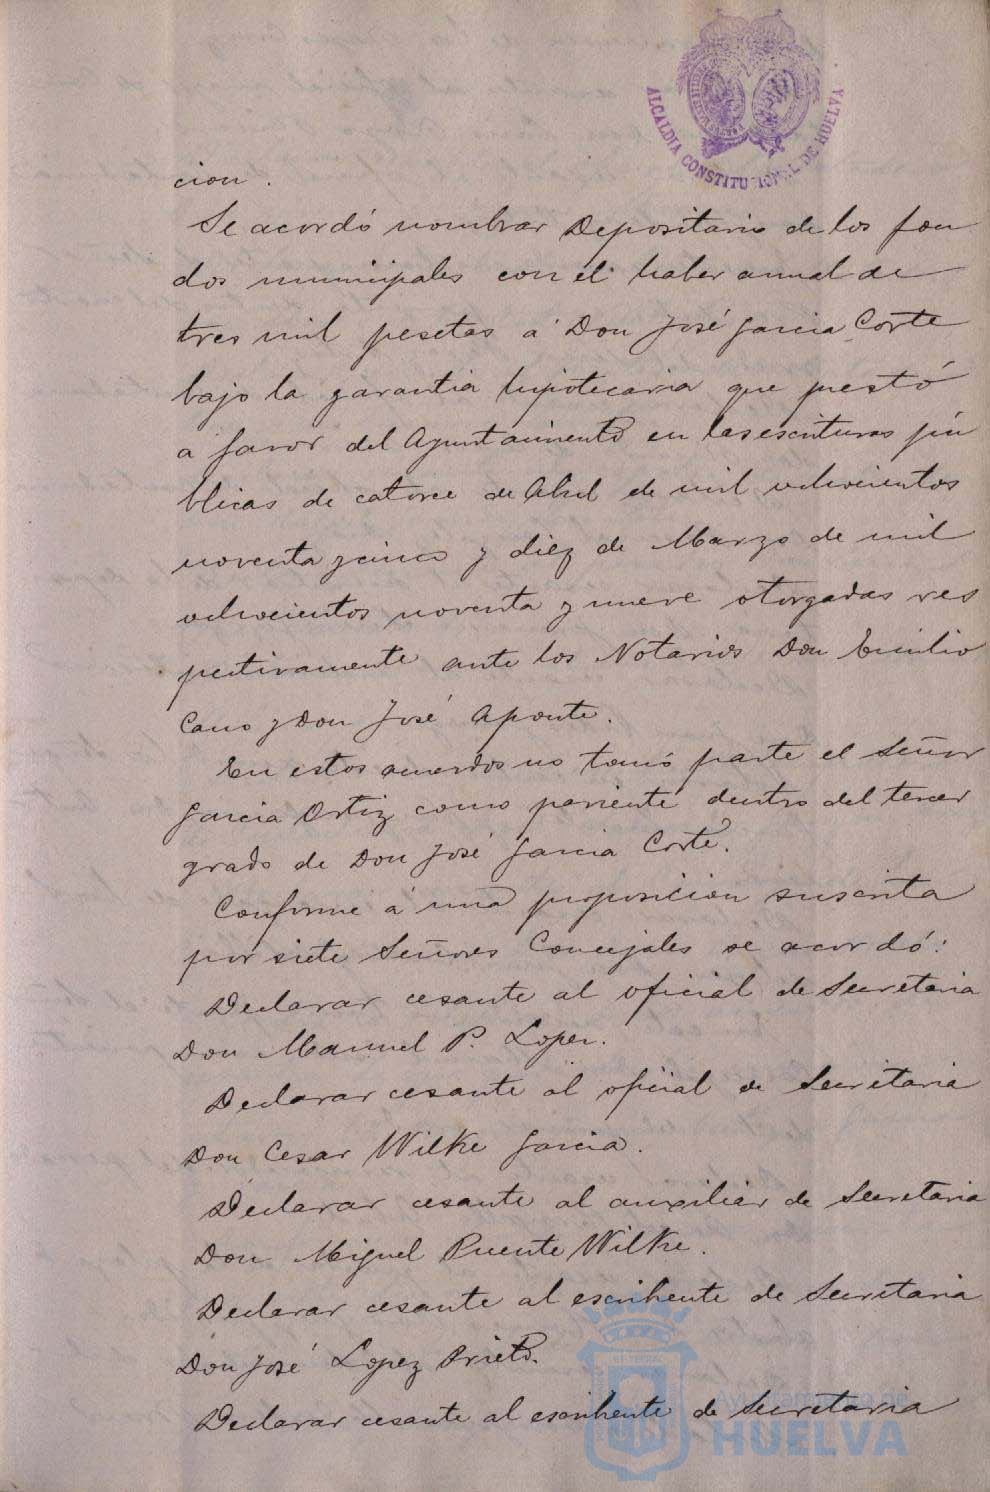 ALCALDIA CONSTITUCIONAL DE HUELVA
cion.
Se acordó nombrar Depositario de los fon
dos municipales con el haber anual de
tres mil pesetas á Don José Garcia Corte
bajo la garantia hipotecaria que prestó
a favor del Ayuntamiento en las escrituras pú
blicas de catorce de Abril de mil ochocientos
noventa y cinco y diez de Marzo de mil
ochocientos noventa y nueve otorgadas res
pectivamente ante los Notarios Don Emilio
Cano y Don José Aponte.
En estos acuerdos no tomó parte el Señor
Garcia Ortiz como pariente dentro del tercer
grado de Don José Garcia Corte.
Conforme á una proposicion suscrita
por siete Señores Concejales se acordó:
Declarar cesante al oficial de Secretaria
Don Manuel P. Lopez.
Declarar cesante al oficial de Secretaria
Don Cesar Wilke Garcia.
Declarar cesante al auxiliar de Secretaria
Don Miguel Puente Wilke.
Declarar cesante al escribente de Secretaria
Don José Lopez Prieto.
Declarar cesante al escribente de Secretaria
Ayuntamiento de
HUELVA